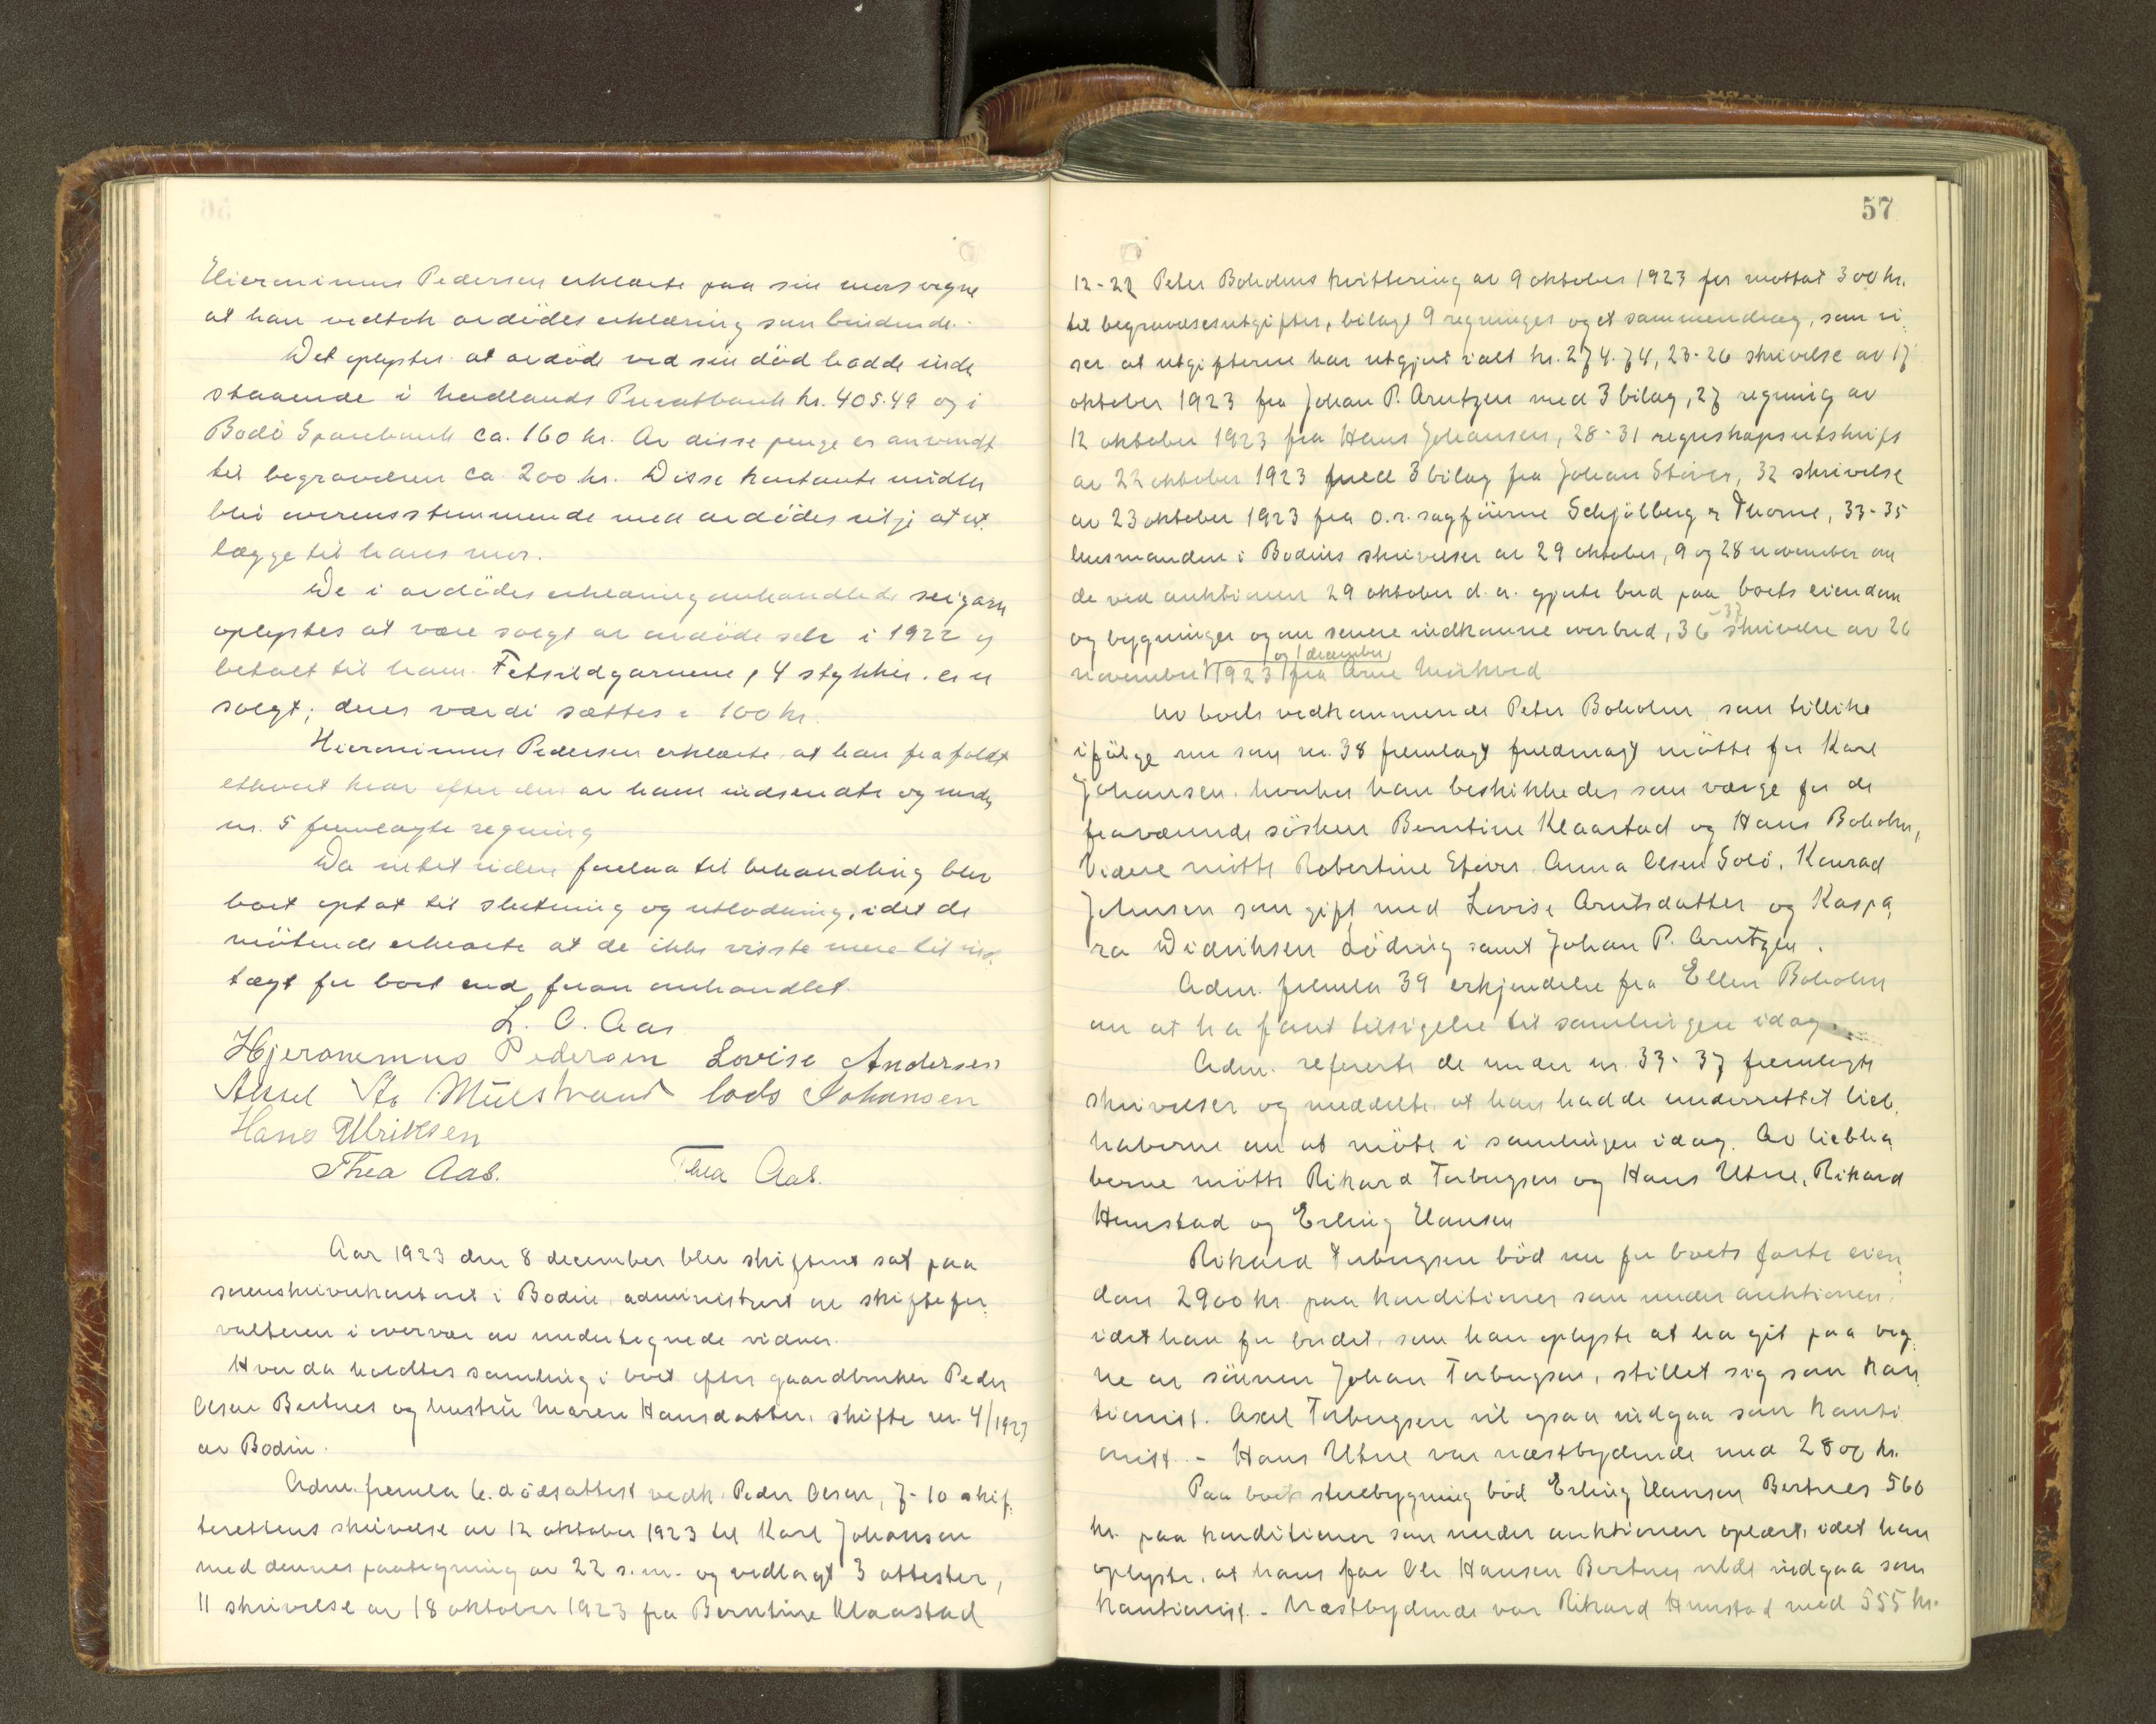 Hieronimus Pedersen erklærte paa sin mors vegne
at han vedtok avdödes erklæring som bindende.
Det oplystes at avdöd ved sin död hadde inde
staaende i Nordlands Privatbank kr. 405.49 og i
Bodö Sparebank ca. 160 kr. Av disse penge er anvendt
til begravelsen ca 200 kr. Disse kontante midler
blir overensstemmende med avdödes vilje at ut
lægge til hans mor.
De i avdödes erklæring omhandlede seigarn
oplystes at være solgt av avdöde selv i 1922 og
betalt til ham. Fetsildgarnene, 4 stykker. er u
solgt; deres værdi sættes a 100 kr.
Hieronimus Pedersen erklærte, at han frafaldt
ethvert krav efter den av ham indsendte og under
nr. 5 fremlagte regning
Da intet videre forelaa til behandling blev
boet optat til slutning og utlodning, idet de
mötende erklærte at de ikke visste mere til ind
tægt for boet end foran omhandlet.
L. C. Aas
Hjeronemus Pedersen Lovise Andersen
Aksel Mülstrand lods Johansen
Hans Ulriksen
Thea Aas. Thea Aas.
Aar 1923 den 8 december blev skifteret sat paa
sorenskriverkontoret i Bodin, administrert av skiftefor-
valteren i overvær av undertegnede vidner.
Hvorda holdtes samling i boet efter gaardbruker Peder
Olsen Bertnes og hustru Maren Hansdatter, skifte nr. 4/1923
av Bodin.
Adm. fremla 6. dödsattest vedk. Peder Olsen, 7-10 skif-
terettens skrivelse av 12 oktober 1923 til Karl Johansen
med dennes paategning av 22 s.m. og vedlagt 3 attester,
11 skrivelse av 18 oktober 1923 fra Berntine Klaastad
57
12-22 Peter Boholms kvittering av 9 oktober 1923 for mottat 300 kr.
til begravelsesutgifter, bilagt 9 regninger og et sammendrag, som vi-
ser at utgifterne har utgjort ialt kr. 274.74, 23-26 skrivelse av 17
oktober 1923 fra Johan P. Arntzen med 3 bilag, 27 regning av
12 oktober 1923 fra Hans Johansen, 28-31 regnskapsutskrift
av 22 oktober 1923 med 3 bilag fra Johan Støver, 32 skrivelse
av 23 oktober 1923 fra o.r. sagförerne Schjölberg & Thorne, 33-35
lensmanden i Bodins skrivelser av 29 oktober, 9 og 28 november om
de ved auktionen 29 oktober d.a. gjorte bud paa boets eiendom
og bygninger og om senere indkomne overbud, 36 -37 skrivelse av 26
november og 1 december 1923 fra Arne Mörkved
Av boets vedkommende Peter Boholm som tillike
ifölge nu som nr. 38 fremlagt fuldmagt mötte for Karl
Johansen. hvorhos han beskikkedes som værge for de
fraværende söskne Berntine Klaastad og Hans Boholm,
Videre mötte Robertine Støver. Anna Olsen Solö. Konrad
Johnsen som gift med Lovise Arntsdatter og Kaspa-
ra Didriksen Löding samt Johan P. Arntzen.
Adm. fremla 39 erkjendelse fra Ellen Boholm
om at ha faat tilsigelse til samlingen idag.
Adm. refererte de under nr. 33-37 fremlagte
skrivelser og meddelte, at han hadde underrettet lieb-
haberne om at möte i samlingen idag. Av liebha-
berne mötte Rikard Torbergsen og Hans Utne, Rikard
Hunstad og Erling Hansen
Rikard Torbergsen böd nu for boets faste eien-
dom 2900 kr. paa konditioner som under auktionen.
idet han for budet, som han oplyste at ha git paa veg-
ne av sönnen Johan Torbergsen, stillet sig som kau-
tionist. Axel Torbergsen vil ogsaa indgaa som kauti-
onist. - Hans Utne var næstbydende med 2800 kr.
Paa boets stuebygning böd Erling Hansen Bertnes 560
kr. paa konditioner som under auktionen oplæst, idet han
oplyste, at hans far Ole Hansen Bertnes vilde indgaa som
kautionist. - Næstbydende var Rikard Hunstad med 555 kr.